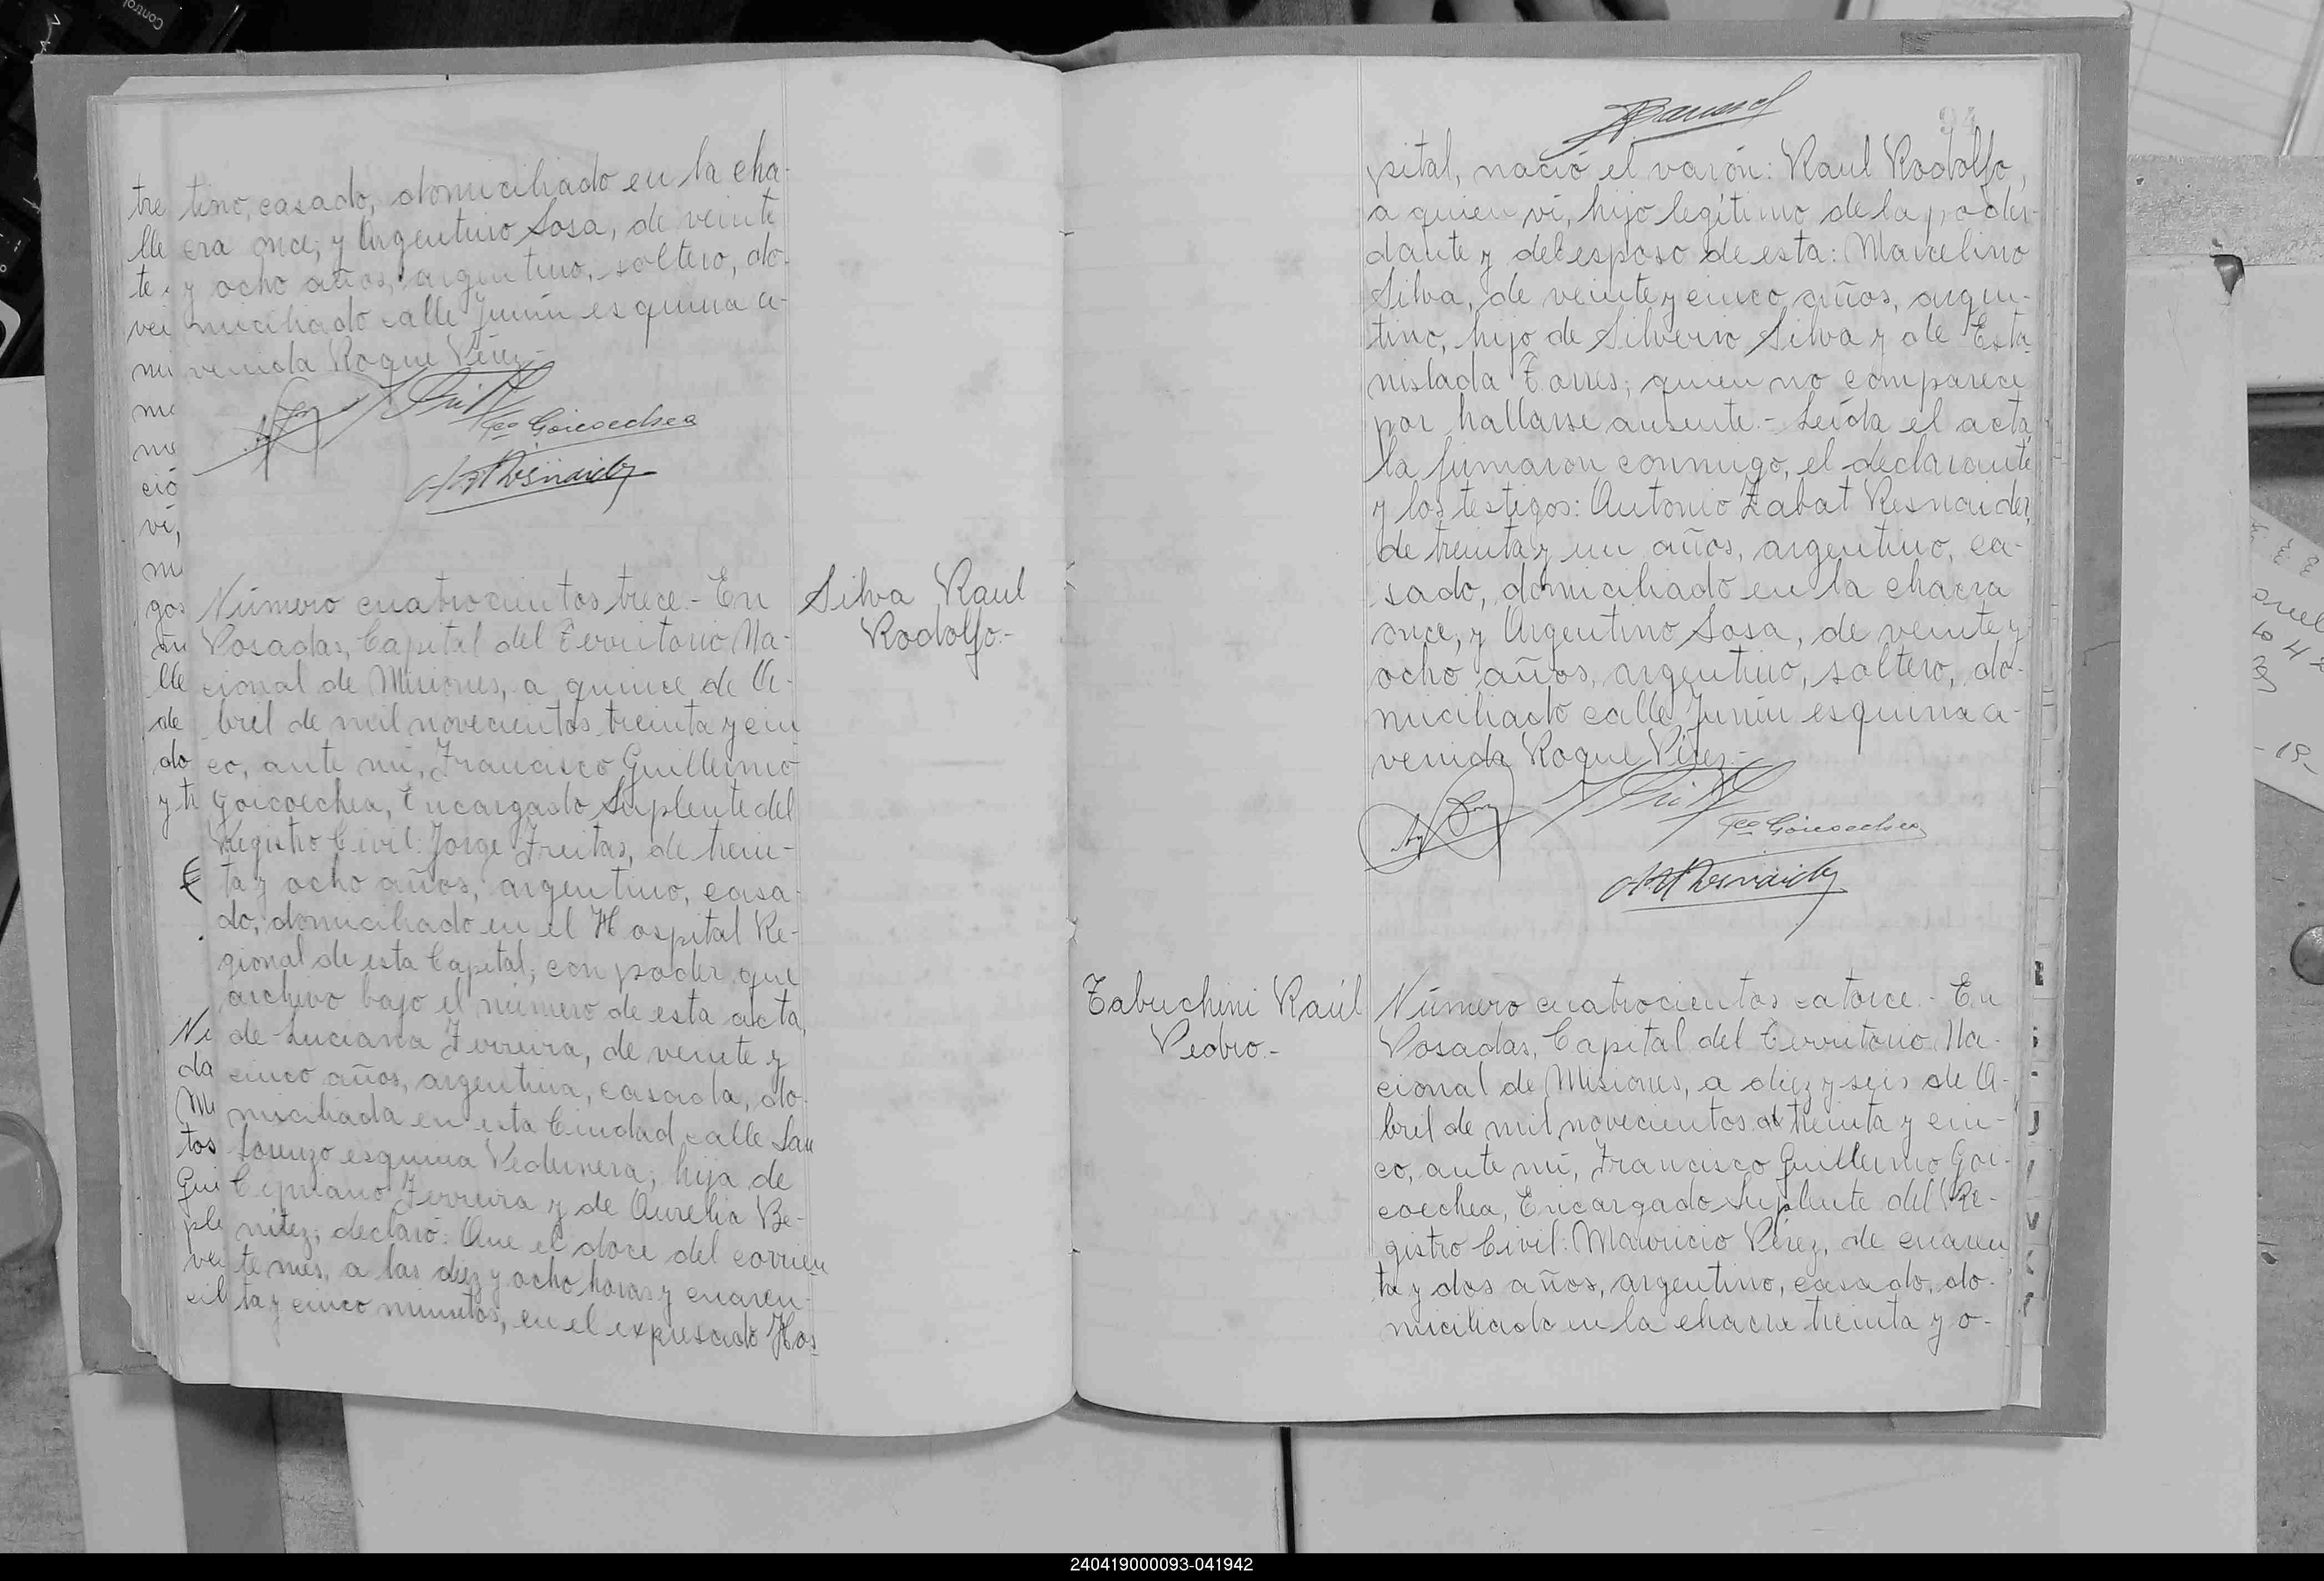 tino, casado, domiciliado en la cha-
cra once; y Argentino Sosa, de veinte
y ocho años, argentino, soltero, do-
miciliado calle Junín esquina a-
venida Roque Pérez.-
Fco Goicoechea
Silva Raul
Rodolfo.-
Número cuatrocientos trece.- En
Posadas, Capital del Territorio Na-
cional de Misiones, a quince de A-
bril de mil novecientos treinta y cin
co, ante mí, Francisco Guillermo
Goicoechea, Encargado Suplente del
Registro Civil: Jorge Freitas, de trein-
ta y ocho años, argentino, casa-
do, domiciliado en el Hospital Re-
gional de esta Capital; con poder que
archivo bajo el número de esta acta,
de Luciana Ferreira, de veinte y
cinco años, argentina, casada, do-
miciliada en esta Ciudad calle San
Lorenzo esquina Pedernera; hija de
Cipriano Ferreira y de Aurelia Be-
nitez; declaró: Que el doce del corrien
te mes, a las diez y ocho horas y cuaren-
ta y cinco minutos, en el expresado Hos
94
pital, nació el varón: Raul Rodolfo,
a quien ví, hijo legítimo de la poder-
dante y del esposo de esta: Marcelino
Silva, de veinte y cinco años, argen-
tino, hijo de Silverio Silva y de Esta-
nislada Torres; quien no comparece
por hallarse ausente.- Leída el acta,
la firmaron conmigo, el declarante
y los testigos: Antonio Zabat Resnaider,
de treinta y un años, argentino, ca-
sado, domiciliado en la chacra
once, y Argentino Sosa, de veinte y
ocho años, argentino, soltero, do-
miciliado calle Junín esquina a-
venida Roque Pérez.-
Fco Goicoechea
Tabuchini Raúl
Pedro.-
Número cuatrocientos catorce.- En
Posadas, Capital del Territorio Na-
cional de Misiones, a diez y seis de A-
bril de mil novecientos treinta y cin-
co, ante mí, Francisco Guillermo Goi-
coechea, Encargado Suplente del Re-
gistro Civil: Mauricio Pérez, de cuaren
ta y dos años, argentino, casado, do-
miciliado en la chacra treinta y o-
240419000093-041942